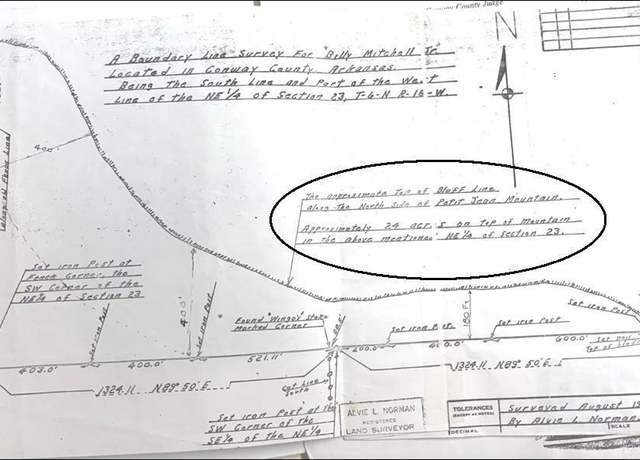 County Judge
A Boundary Line Survey For "Billy Mitchell Jr."
Located in Conway County, Arkansas.
Being The South Line and Part of the West
Line of the NE¼ of Section 23, T-6-N R-16-W.
N
400
The approximate Top of Bluff Line
Along The North Side of Petit Jean Mountain.
Approximately 24 acr s on top of Mountain
in the above mentione NE¼ of Section 23.
Set iron Post at
Fence Corner, the
SW Corner of the
NE¼ of Section 23
400.0'
Set iron Post
Set iron Post
Found "Wingo" Stake
Marked Corner
180 Ft
Set iron Post
Set iron Post
403.0'
400.0'
521.11'
200.0'
400.0'
600.0'
1324.11 N89° 50' E
Cut Line
South
1324.11 N89° 50' E
Set iron Post at the
SW Corner of the
SE¼ of the NE¼
ALVIE L. NORMAN
REGISTERED
LAND SURVEYOR
TOLERANCES
(EXCEPT AS NOTED)
DECIMAL
Surveyed August 19
By Alvie L. Norman
SCALE